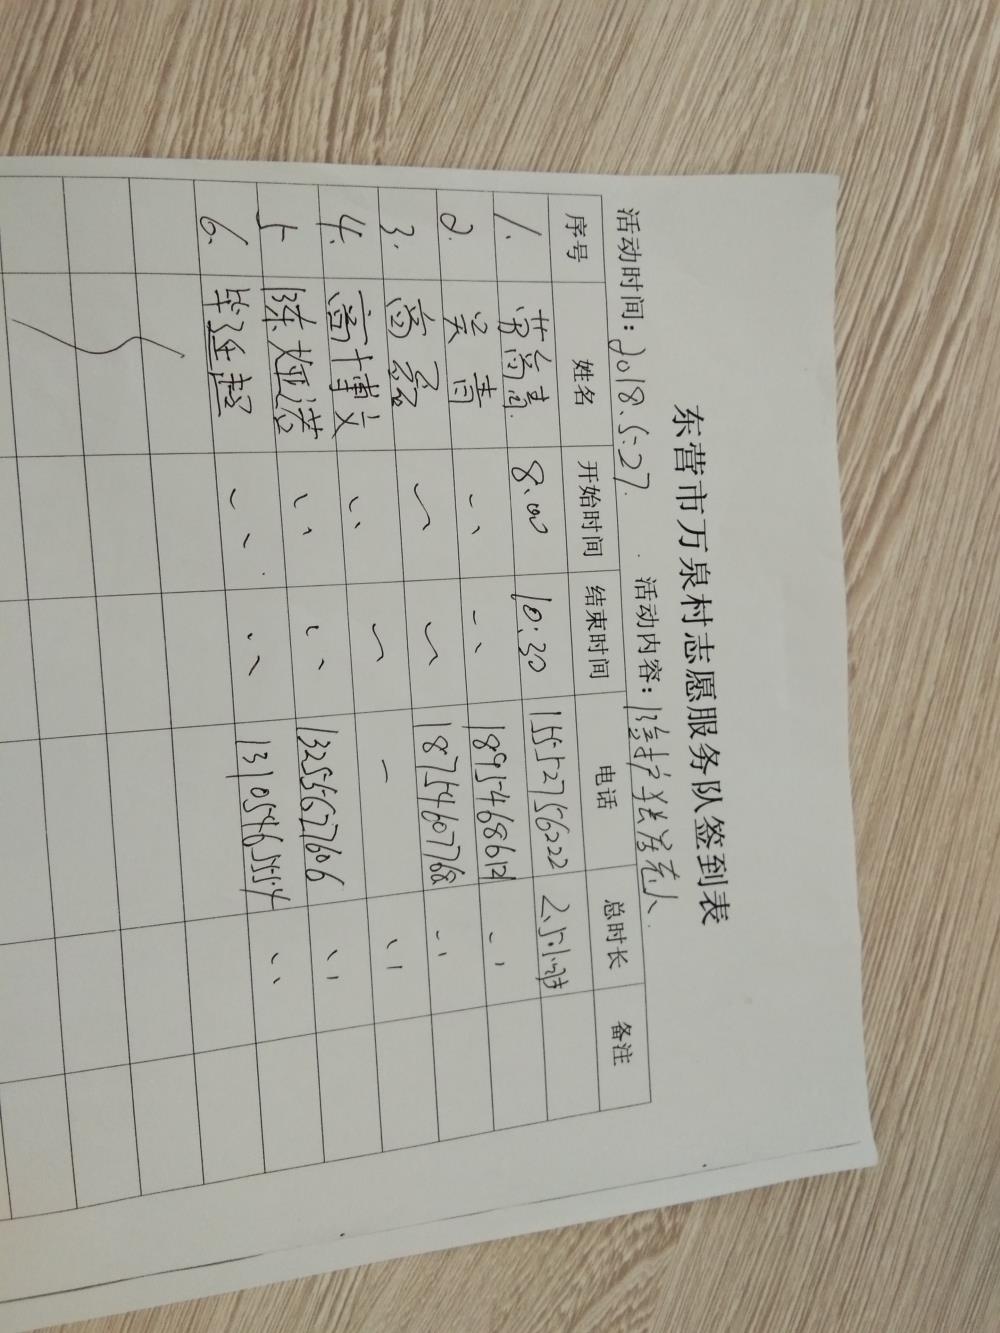 东营市万泉村志愿服务队签到表
活动时间:2018.5.27. 活动内容:
序号 姓名 开始时间 结束时间 电话 总时长 备注
1. 8.00 10:30 15552756222 2.5小时
2. 吴青 〃 〃 18954686121 〃
3. 高磊 〃 〃 18754607768 〃
4. 高博文 〃 〃 — 〃
5 陈娅诺 〃 〃 13255627606 〃
6. 毕延超 〃 〃 13105465554 〃